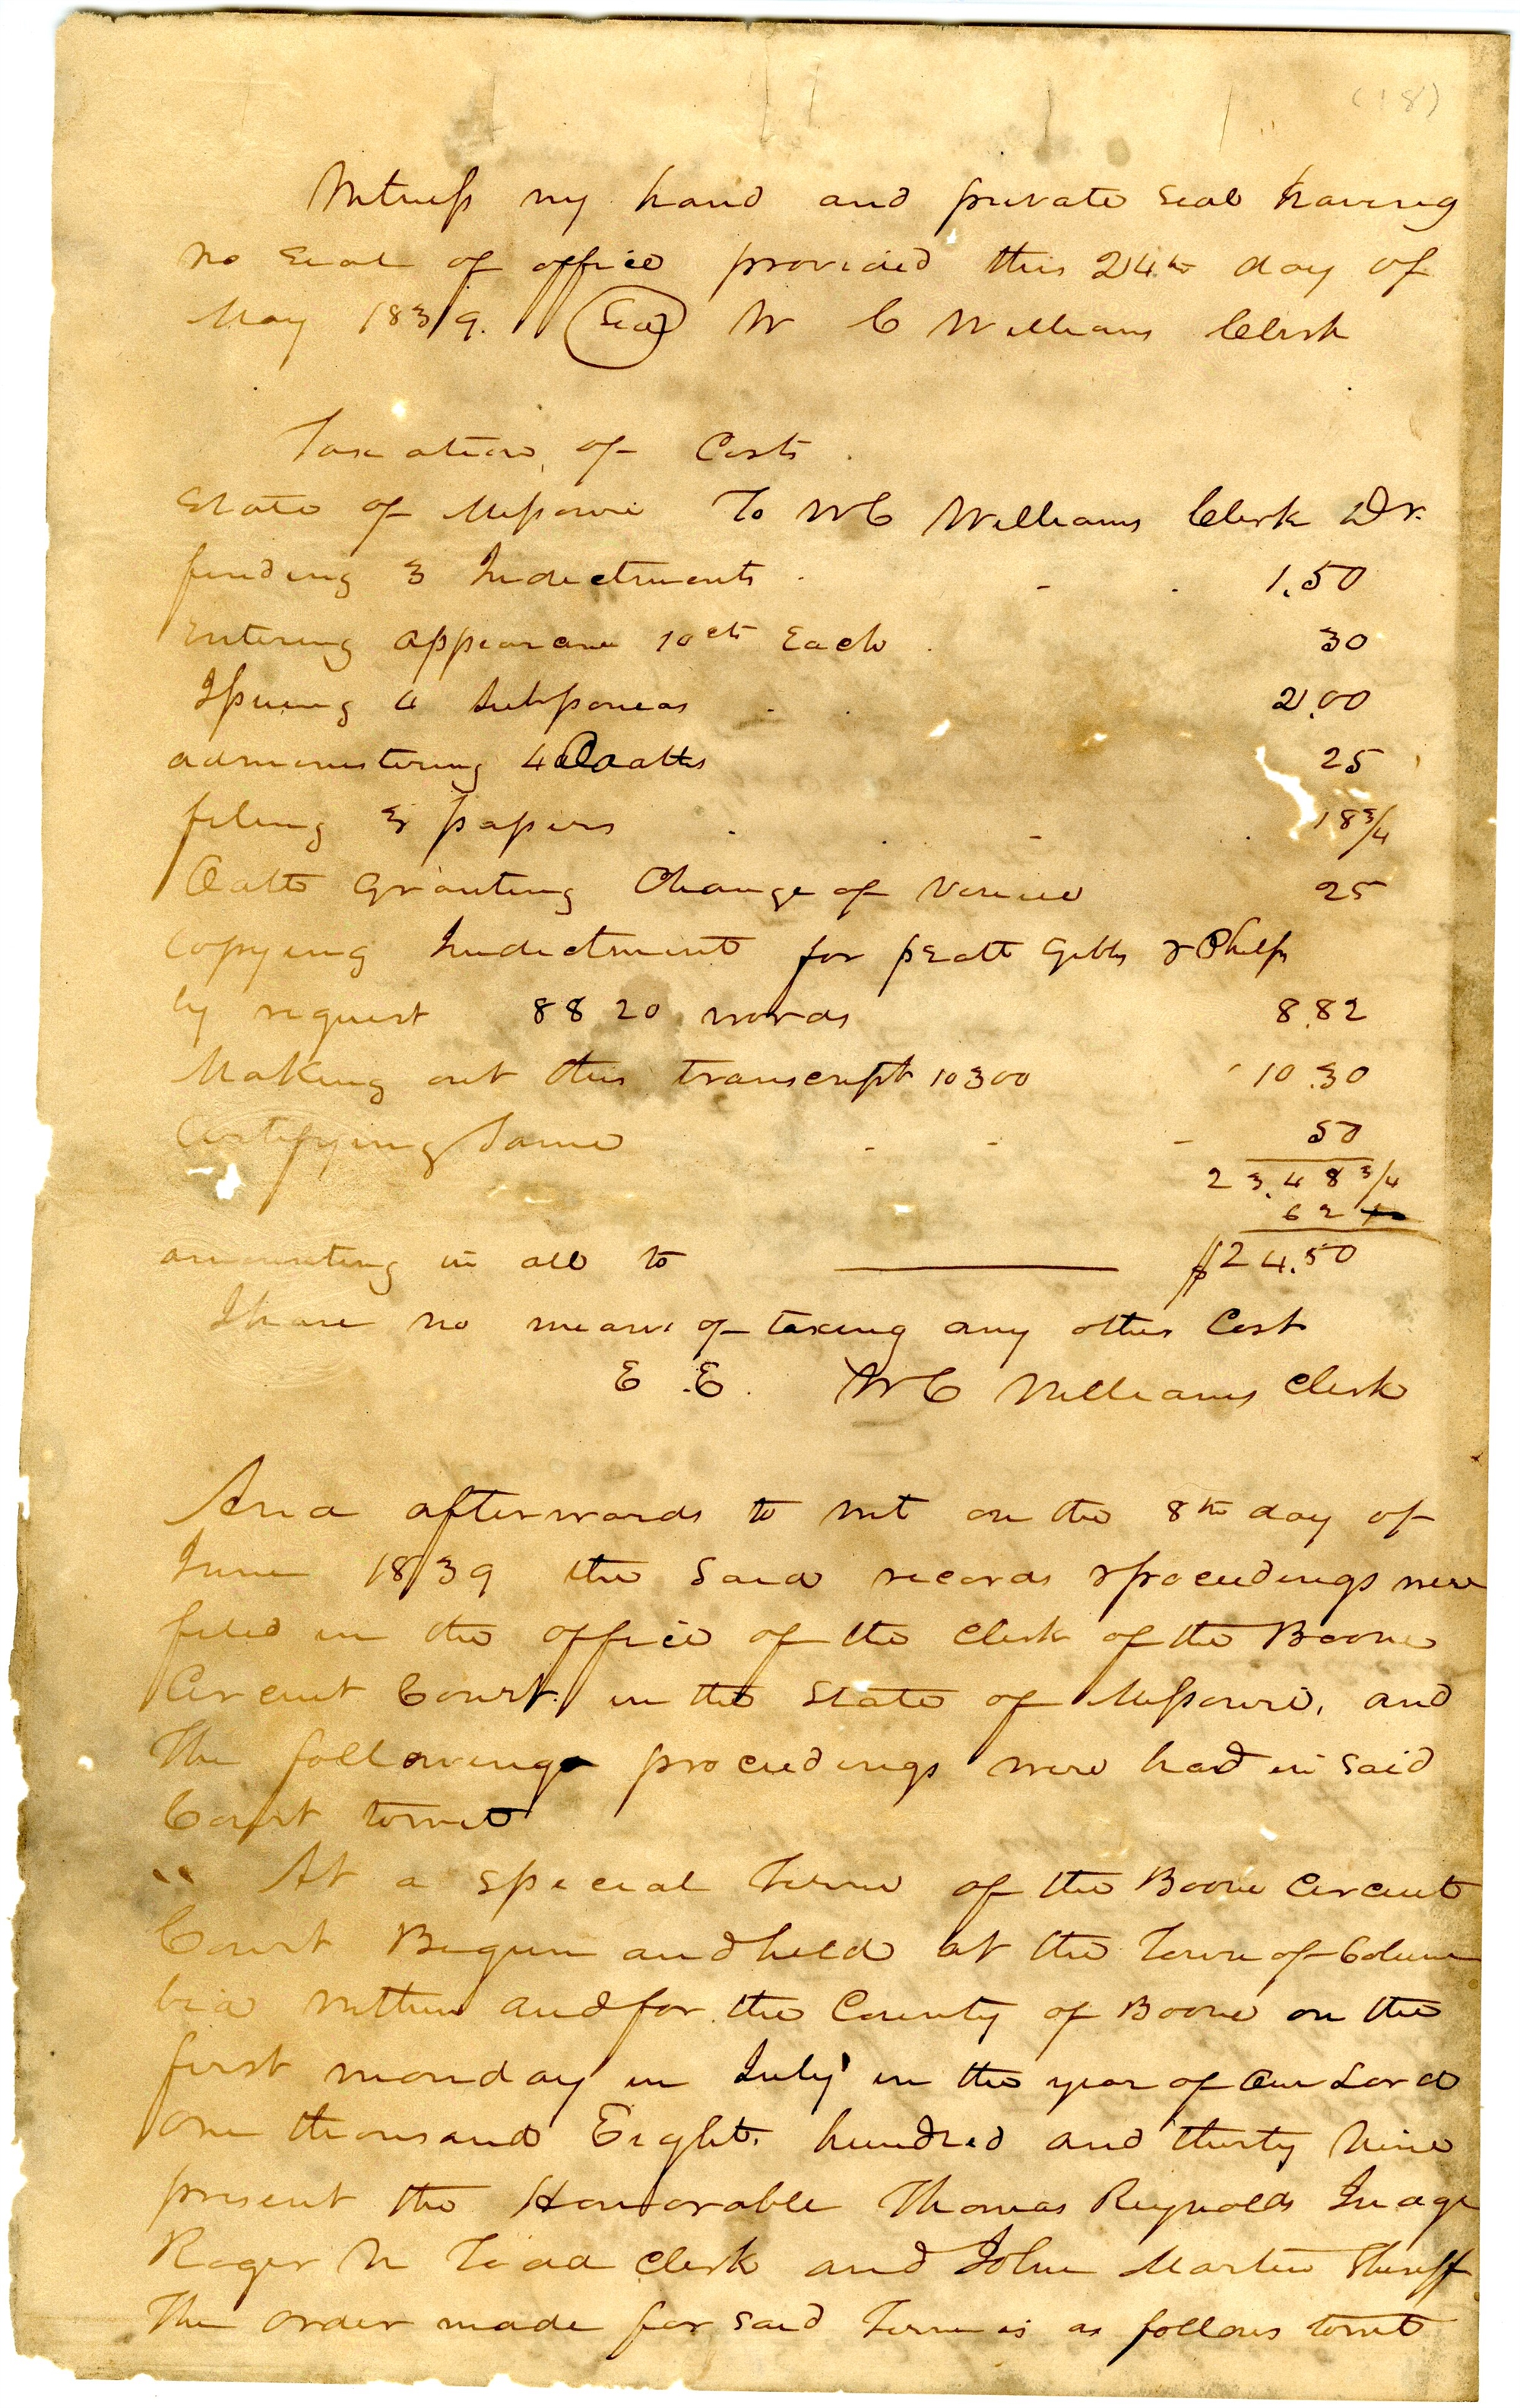 (18)
Witness my hand and private seal having
no Seal of office provided this 24th day of
May 1839. Seal W C Williams Clerk
Taxation of Costs.
State of Missouri To W C Williams Clerk Dr.
finding 3 Indictments . - . 1.50
Entering appearance 10cts Each . 30
Issuing 4 Subpoenas . . 2.00
administering 4 Oaths 25
filing 3 papers . . - . 18 3/4
Oath Granting Change of Venue 25
Copying Indictment for pratt Gibbs & Phelps
by request 8820 words 8.82
Making out this transcript 10300 10.30
Certifying Same - - - 50
23.48 3/4
62
amounting in all to $24.50
I have no means of taxing any other Cost
E. E. W C Williams Clerk
And afterwards to wit on the 8th day of
June 1839 the Said records & proceedings were
filed in the office of the Clerk of the Boone
Circuit Court in the State of Missouri, and
The following proceedings were had in Said
Court towit
" At a Special Term of the Boone Circuit
Court Begun and held at the Town of Colum
bia within and for the County of Boone on the
first monday in July in the year of Our Lord
One thousand Eight hundred and thirty Nine
present the Honorable Thomas Reynolds Judge
Roger N Todd Clerk and John Martin Sheriff
The order made for Said Term is as follows towit